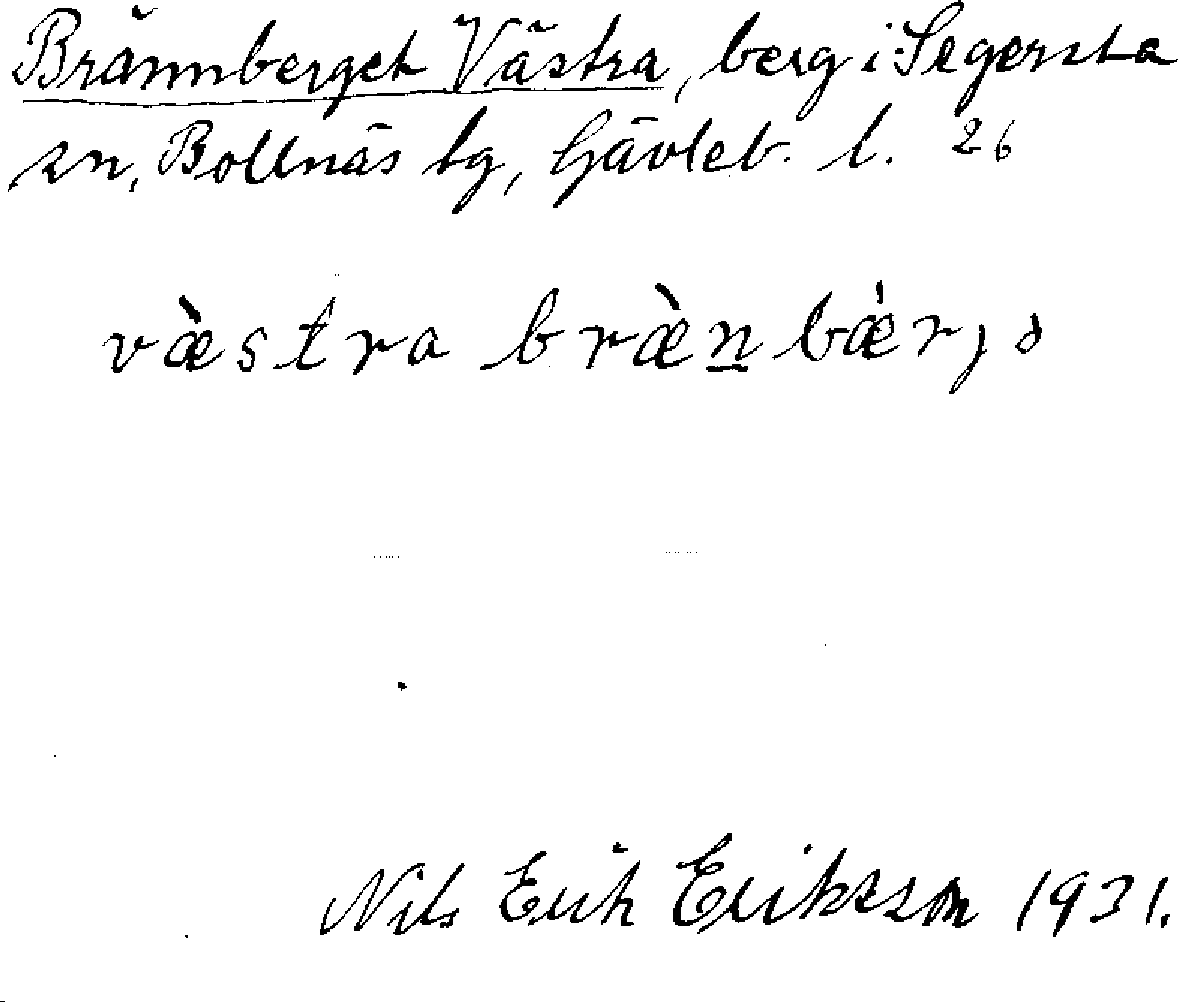 Brännberget Västra, berg i Segersta
sn, Bollnäs tg, Gävleb. l. 26
væ̀stra bræ̀n̲bǽrjə
Nils Erik Eriksson 1931.